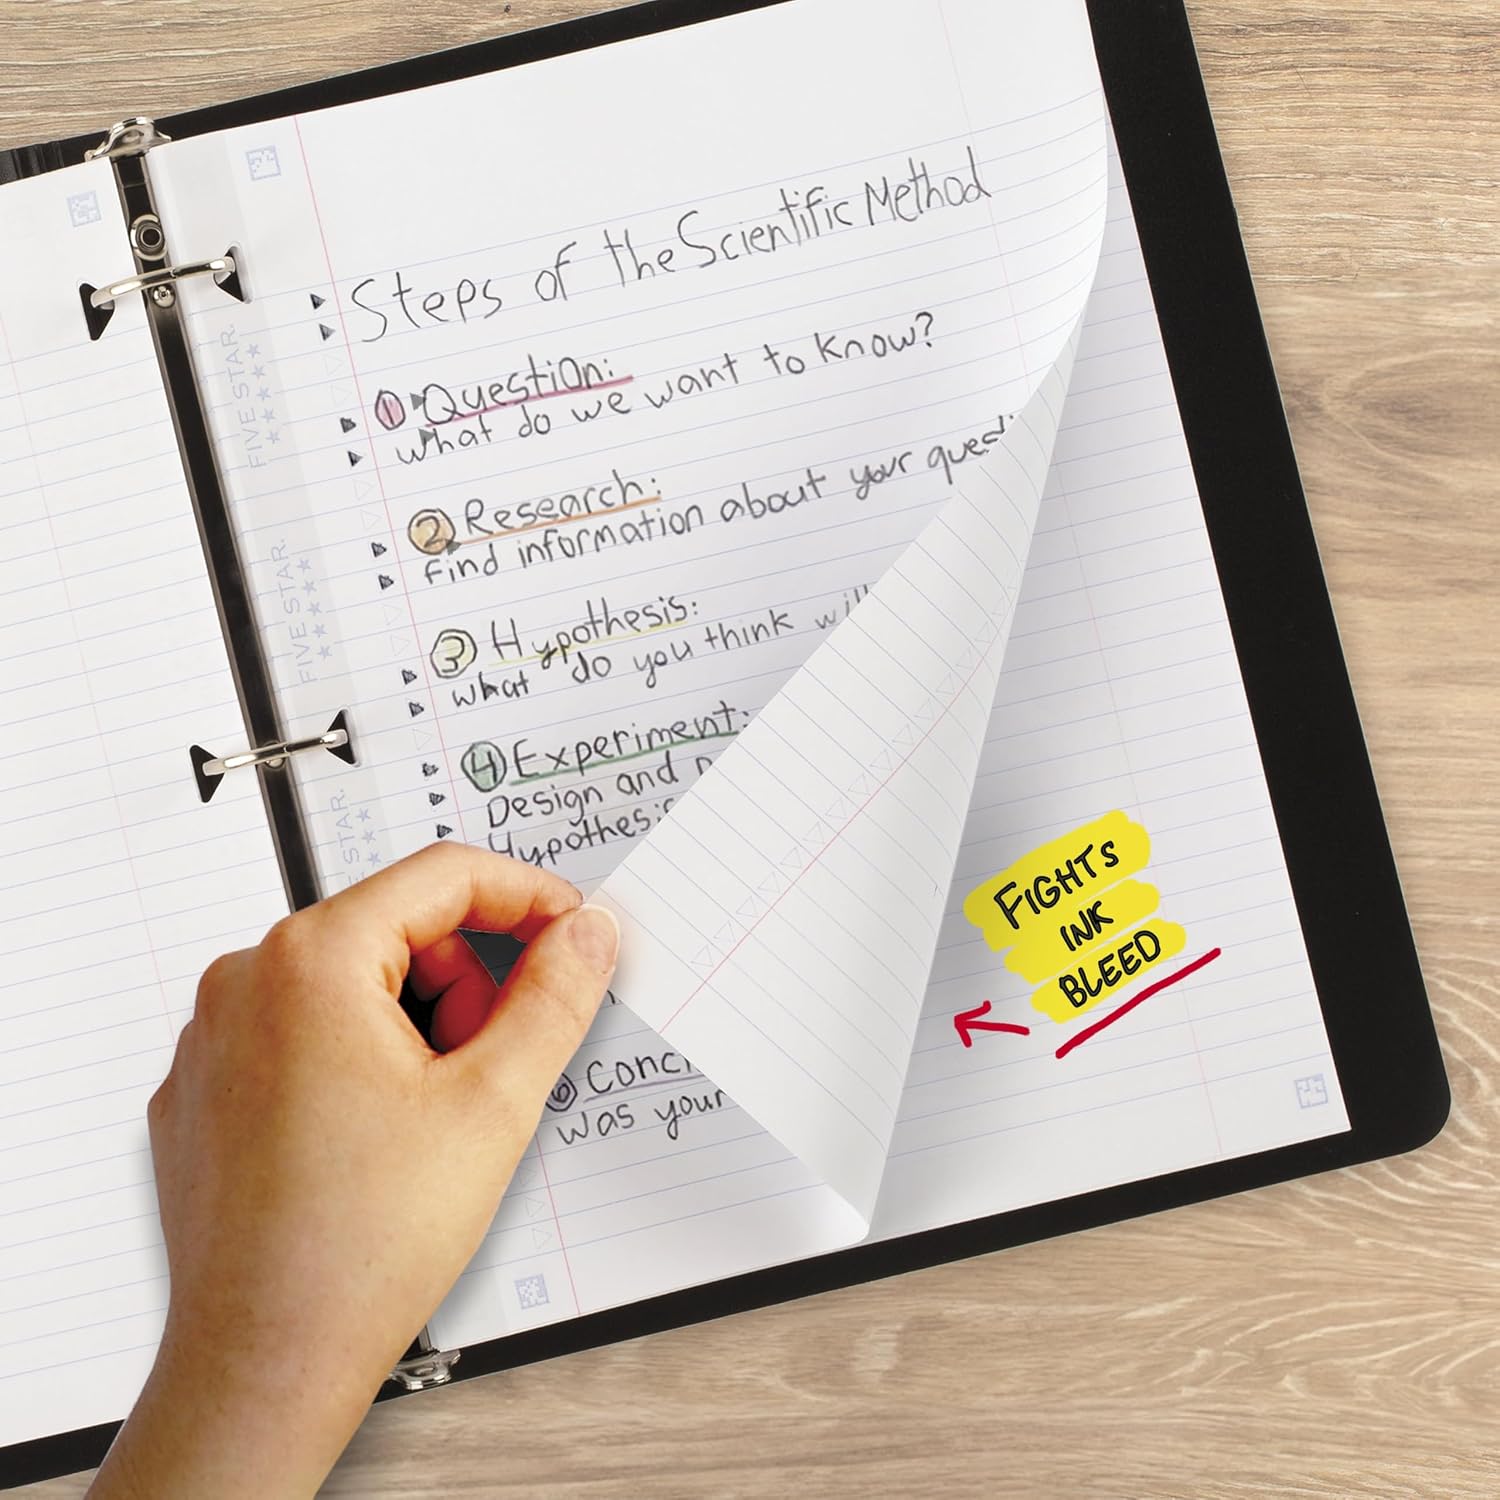 Steps of the Scientific Method
① Question:
What do we want to know?
② Research:
Find information about your
③ Hypothesis:
What do you think
④ Experiment:
Design and
⑥
Was your
FIVE STAR.
FIVE STAR.
STAR.
FIGHTS
INK
BLEED